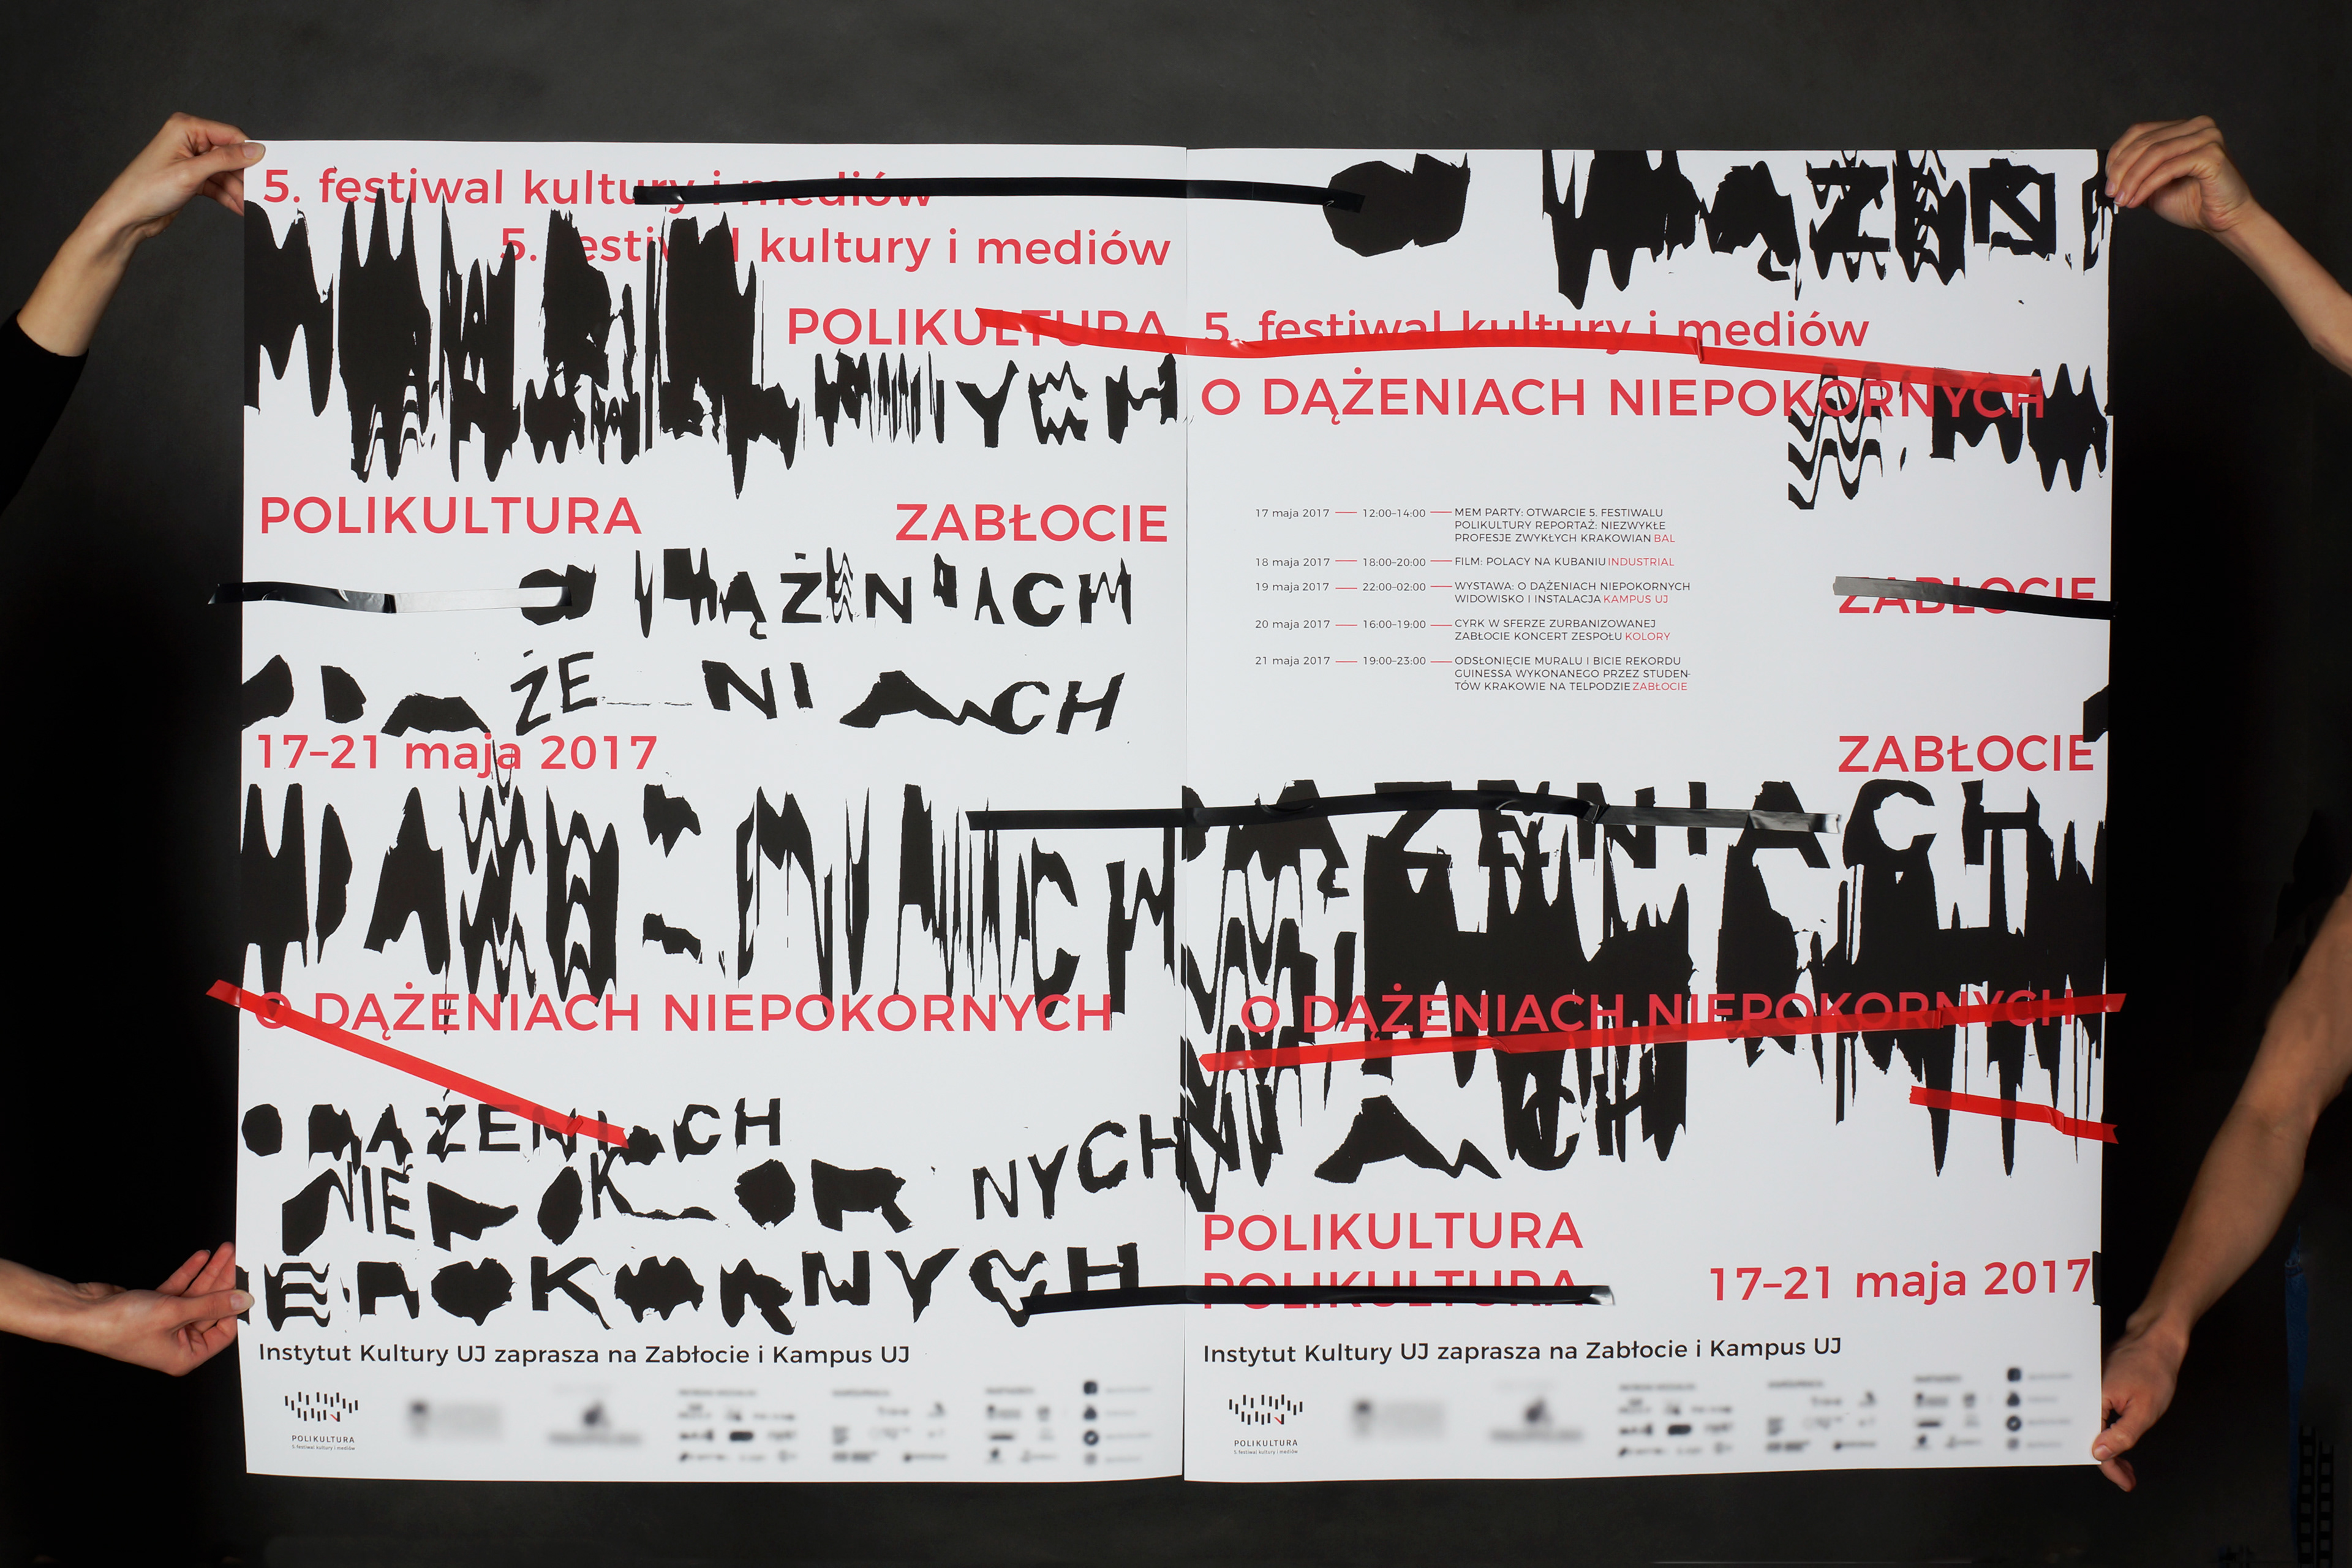 5. festiwal kultury i mediów
5. festiwal kultury i mediów
POLIKULTURA
NYCH
POLIKULTURA
ZABŁOCIE
O DĄŻENIACH
ŻENIACH
17–21 maja 2017
O DĄŻENIACH NIEPOKORNYCH
O DĄŻENIACH
NIEPOKORNYCH
EPOKORNYCH
Instytut Kultury UJ zaprasza na Zabłocie i Kampus UJ
POLIKULTURA
5. festiwal kultury i mediów
5. festiwal kultury i mediów
O DĄŻENIACH NIEPOKORNYCH
17 maja 2017 — 12:00–14:00 — MEM PARTY: OTWARCIE 5. FESTIWALU
POLIKULTURY REPORTAŻ: NIEZWYKŁE
PROFESJE ZWYKŁYCH KRAKOWIAN BAL
18 maja 2017 — 18:00–20:00 — FILM: POLACY NA KUBANIU INDUSTRIAL
19 maja 2017 — 22:00–02:00 — WYSTAWA: O DĄŻENIACH NIEPOKORNYCH
WIDOWISKO I INSTALACJA KAMPUS UJ
20 maja 2017 — 16:00–19:00 — CYRK W SFERZE ZURBANIZOWANEJ
ZABŁOCIE KONCERT ZESPOŁU KOLORY
21 maja 2017 — 19:00–23:00 — ODSŁONIĘCIE MURALU I BICIE REKORDU
GUINESSA WYKONANEGO PRZEZ STUDEN-
TÓW KRAKOWIE NA TELPODZIE ZABŁOCIE
ZABŁOCIE
ZABŁOCIE
DĄŻENIACH
O DĄŻENIACH NIEPOKORNYCH
POLIKULTURA
POLIKULTURA
17–21 maja 2017
Instytut Kultury UJ zaprasza na Zabłocie i Kampus UJ
POLIKULTURA
5. festiwal kultury i mediów